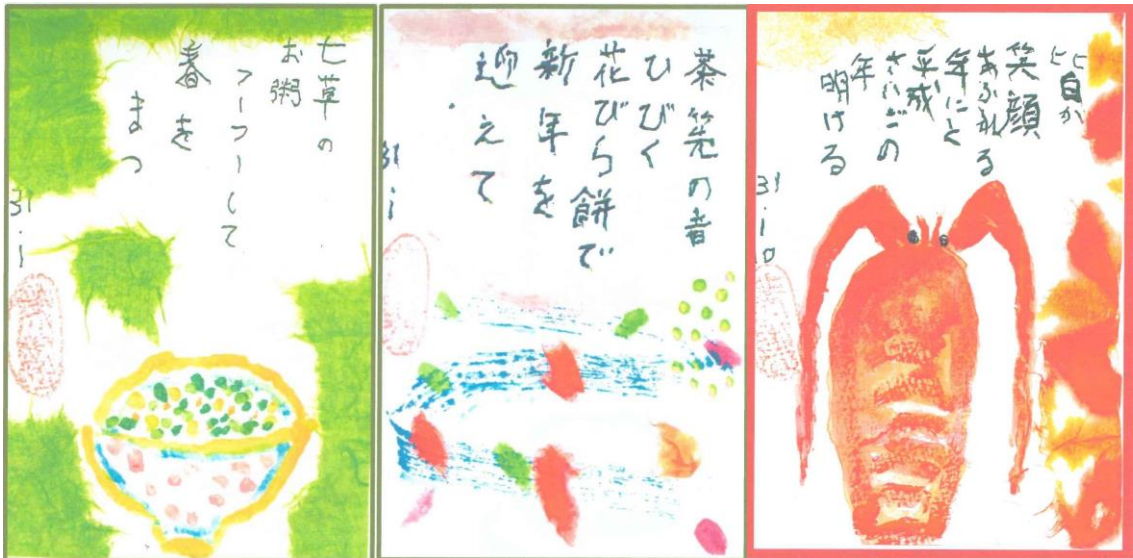 七草の
お粥
フーフーして
春を
まつ
31.1
茶筅の音
ひびく
花びら餅で
新年を
迎えて
31.1
皆が
笑顔
あふれる
年にと
平成
さいごの
年
明ける
31.1